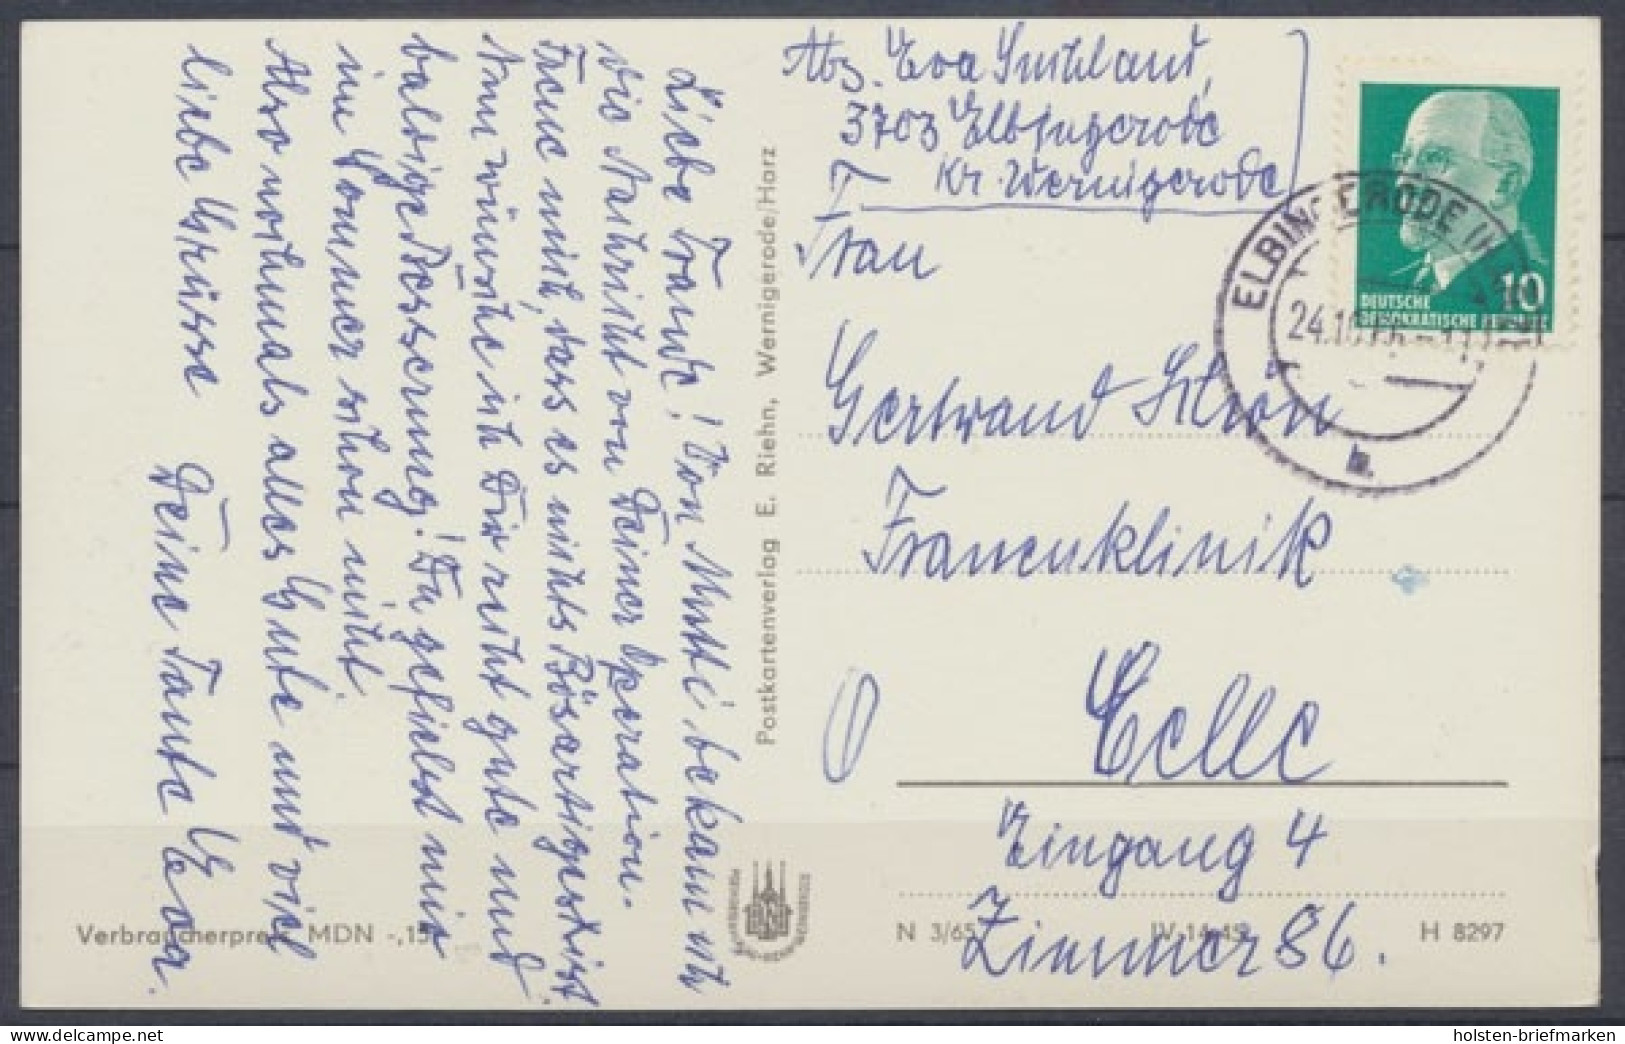 Liebe Traude! Von Mutti bekam ich
die Nachricht von Deiner Operation.
Freue mich, dass es nichts Bösartiges ist.
Nun wünsche ich Dir recht gute und
baldige Besserung! Du gefielst mir
im Sommer schon nicht
Also nochmals alles Gute und viel
liebe Grüsse Deine Tante Eva.
Postkartenverlag E. Riehn, Wernigerode/Harz
Abs. Eva
3703 Elbingerode
Kr. Wernigerode
Frau
Gertraud
Frauenklinik
Celle
Eingang 4
Zimmer 86.
DEUTSCHE
DEMOKRATISCHE REPUBLIK
10
ELBINGERODE
24.10
Verbraucherpreis MDN -,15
N 3/65 IV-14-45 H 8297
delcampe.net
holsten-briefmarken